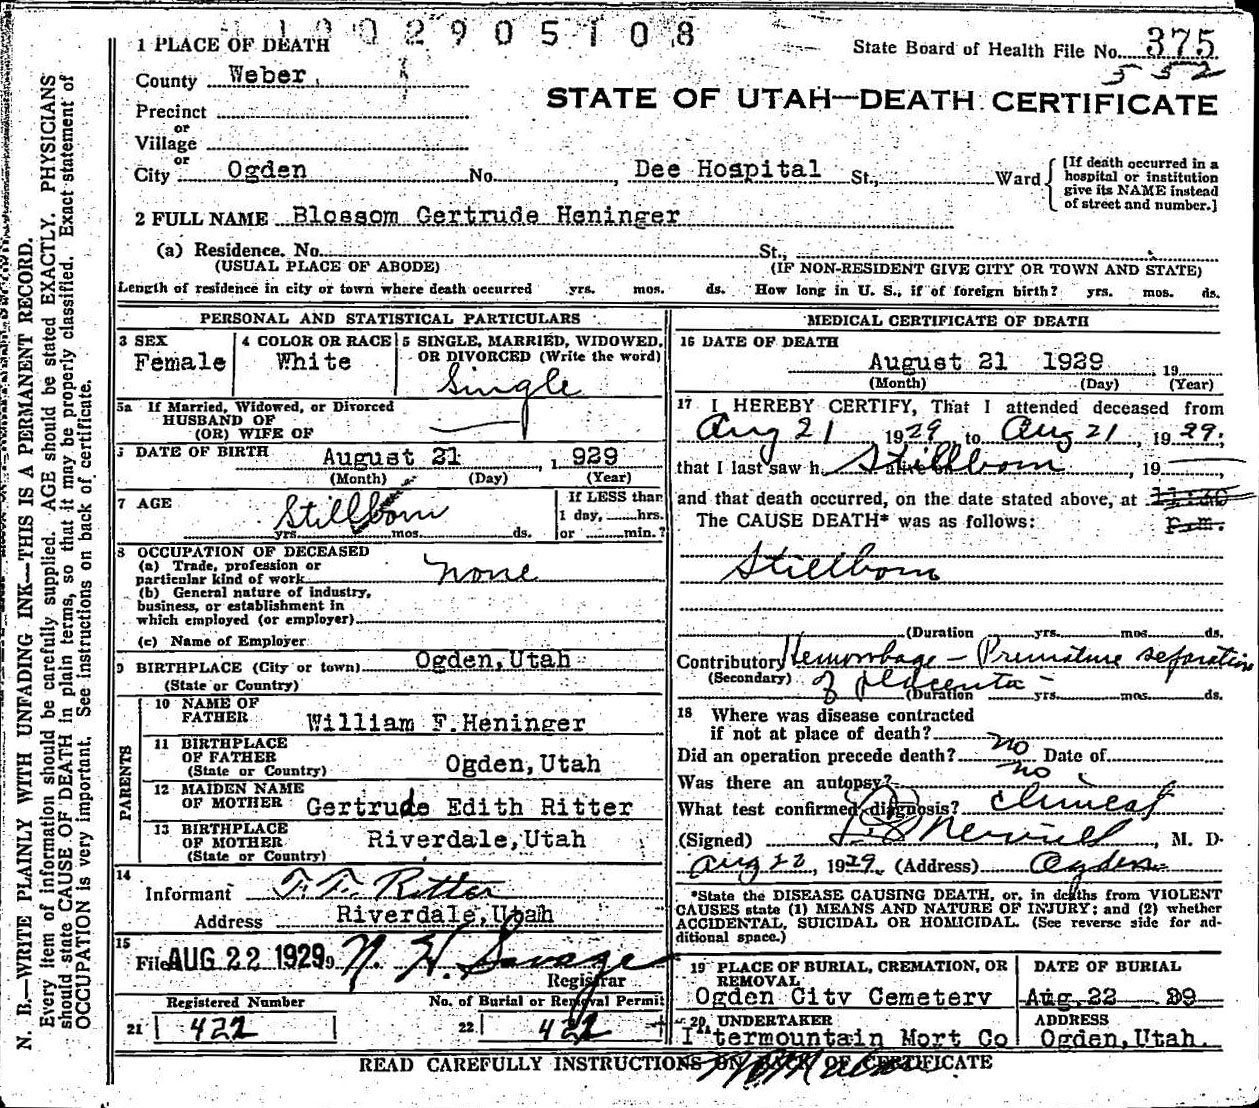 1002905108
1 PLACE OF DEATH
State Board of Health File No. 375
552
County Weber
STATE OF UTAH—DEATH CERTIFICATE
Precinct
or
Village
or
City Ogden No. , Dee Hospital St., Ward
[If death occurred in a hospital or institution give its NAME instead of street and number.]
2 FULL NAME Blossom Gertrude Heninger
(a) Residence. No. St.,
(USUAL PLACE OF ABODE) (IF NON-RESIDENT GIVE CITY OR TOWN AND STATE)
Length of residence in city or town where death occurred yrs. mos. ds. How long in U. S., if of foreign birth? yrs. mos. ds.
PERSONAL AND STATISTICAL PARTICULARS
3 SEX
Female
4 COLOR OR RACE
White
5 SINGLE, MARRIED, WIDOWED,
OR DIVORCED (Write the word)
Single
5a If Married, Widowed, or Divorced
HUSBAND OF
(OR) WIFE OF
DATE OF BIRTH August 21, 1929
(Month) (Day) (Year)
7 AGE Stillborn
yrs. mos. ds.
If LESS than
1 day, hrs.
or min.?
8 OCCUPATION OF DECEASED
(a) Trade, profession or
particular kind of work none
(b) General nature of industry,
business, or establishment in
which employed (or employer)
(c) Name of Employer
9 BIRTHPLACE (City or town) Ogden,Utah
(State or Country)
PARENTS
10 NAME OF
FATHER William F.Heninger
11 BIRTHPLACE
OF FATHER Ogden,Utah
(State or Country)
12 MAIDEN NAME
OF MOTHER Gertrude Edith Ritter
13 BIRTHPLACE
OF MOTHER Riverdale,Utah
(State or Country)
14
Informant T. T. Ritter
Address Riverdale,Utah
15
Filed AUG 22 1929 N. H. Savage
Registrar
Registered Number No. of Burial or Removal Permit
21 422 22 422
MEDICAL CERTIFICATE OF DEATH
16 DATE OF DEATH
August 21 1929, 19
(Month) (Day) (Year)
17 I HEREBY CERTIFY, That I attended deceased from
Aug 21 1929, to Aug 21, 1929,
that I last saw h alive on Stillborn, 19
and that death occurred, on the date stated above, at 11:30
p.m.
The CAUSE DEATH* was as follows:
Stillborn
(Duration yrs. mos. ds.
Contributory Hemorrhage – Premature separation
(Secondary) of placenta
(Duration yrs. mos. ds.
18 Where was disease contracted
if not at place of death?
Did an operation precede death? no Date of
Was there an autopsy? no
What test confirmed diagnosis? Clinical
(Signed) Merrill, M. D.
Aug 22, 1929. (Address) Ogden
*State the DISEASE CAUSING DEATH, or, in deaths from VIOLENT
CAUSES state (1) MEANS AND NATURE OF INJURY; and (2) whether
ACCIDENTAL, SUICIDAL OR HOMICIDAL. (See reverse side for ad-
ditional space.)
19 PLACE OF BURIAL, CREMATION, OR
REMOVAL
Ogden City Cemetery
DATE OF BURIAL
Aug. 22 29
20 UNDERTAKER
I termountain Mort Co
ADDRESS
Ogden,Utah.
READ CAREFULLY INSTRUCTIONS ON BACK OF CERTIFICATE
N. B.—WRITE PLAINLY WITH UNFADING INK—THIS IS A PERMANENT RECORD.
Every item of information should be carefully supplied. AGE should be stated EXACTLY. PHYSICIANS
should state CAUSE OF DEATH in plain terms, so that it may be properly classified. Exact statement of
OCCUPATION is very important. See instructions on back of certificate.